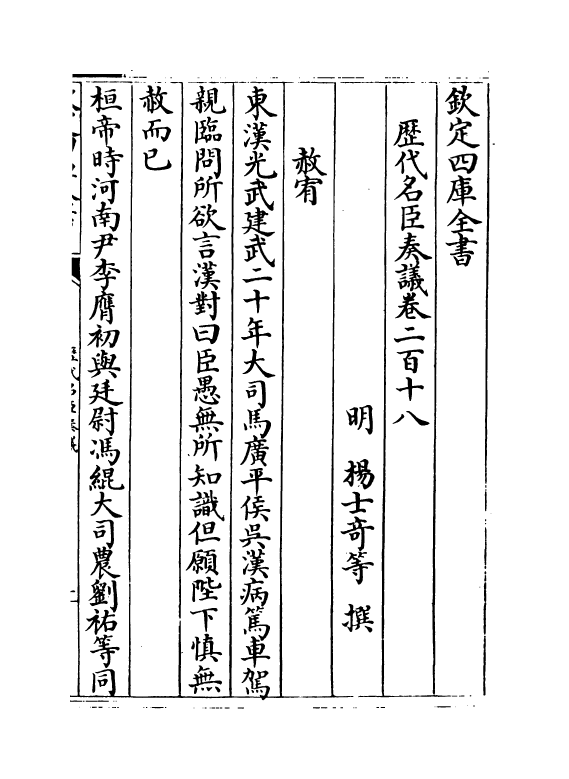 欽定四庫全書
歷代名臣奏議卷二百十八
明 楊士竒等 撰
赦宥
東漢光武建武二十年大司馬廣平侯吳漢病篤車駕
親臨問所欲言漢對曰臣愚無所知識但願陛下慎無
赦而已
桓帝時河南尹李膺初與廷尉馮緄大司農劉祐等同